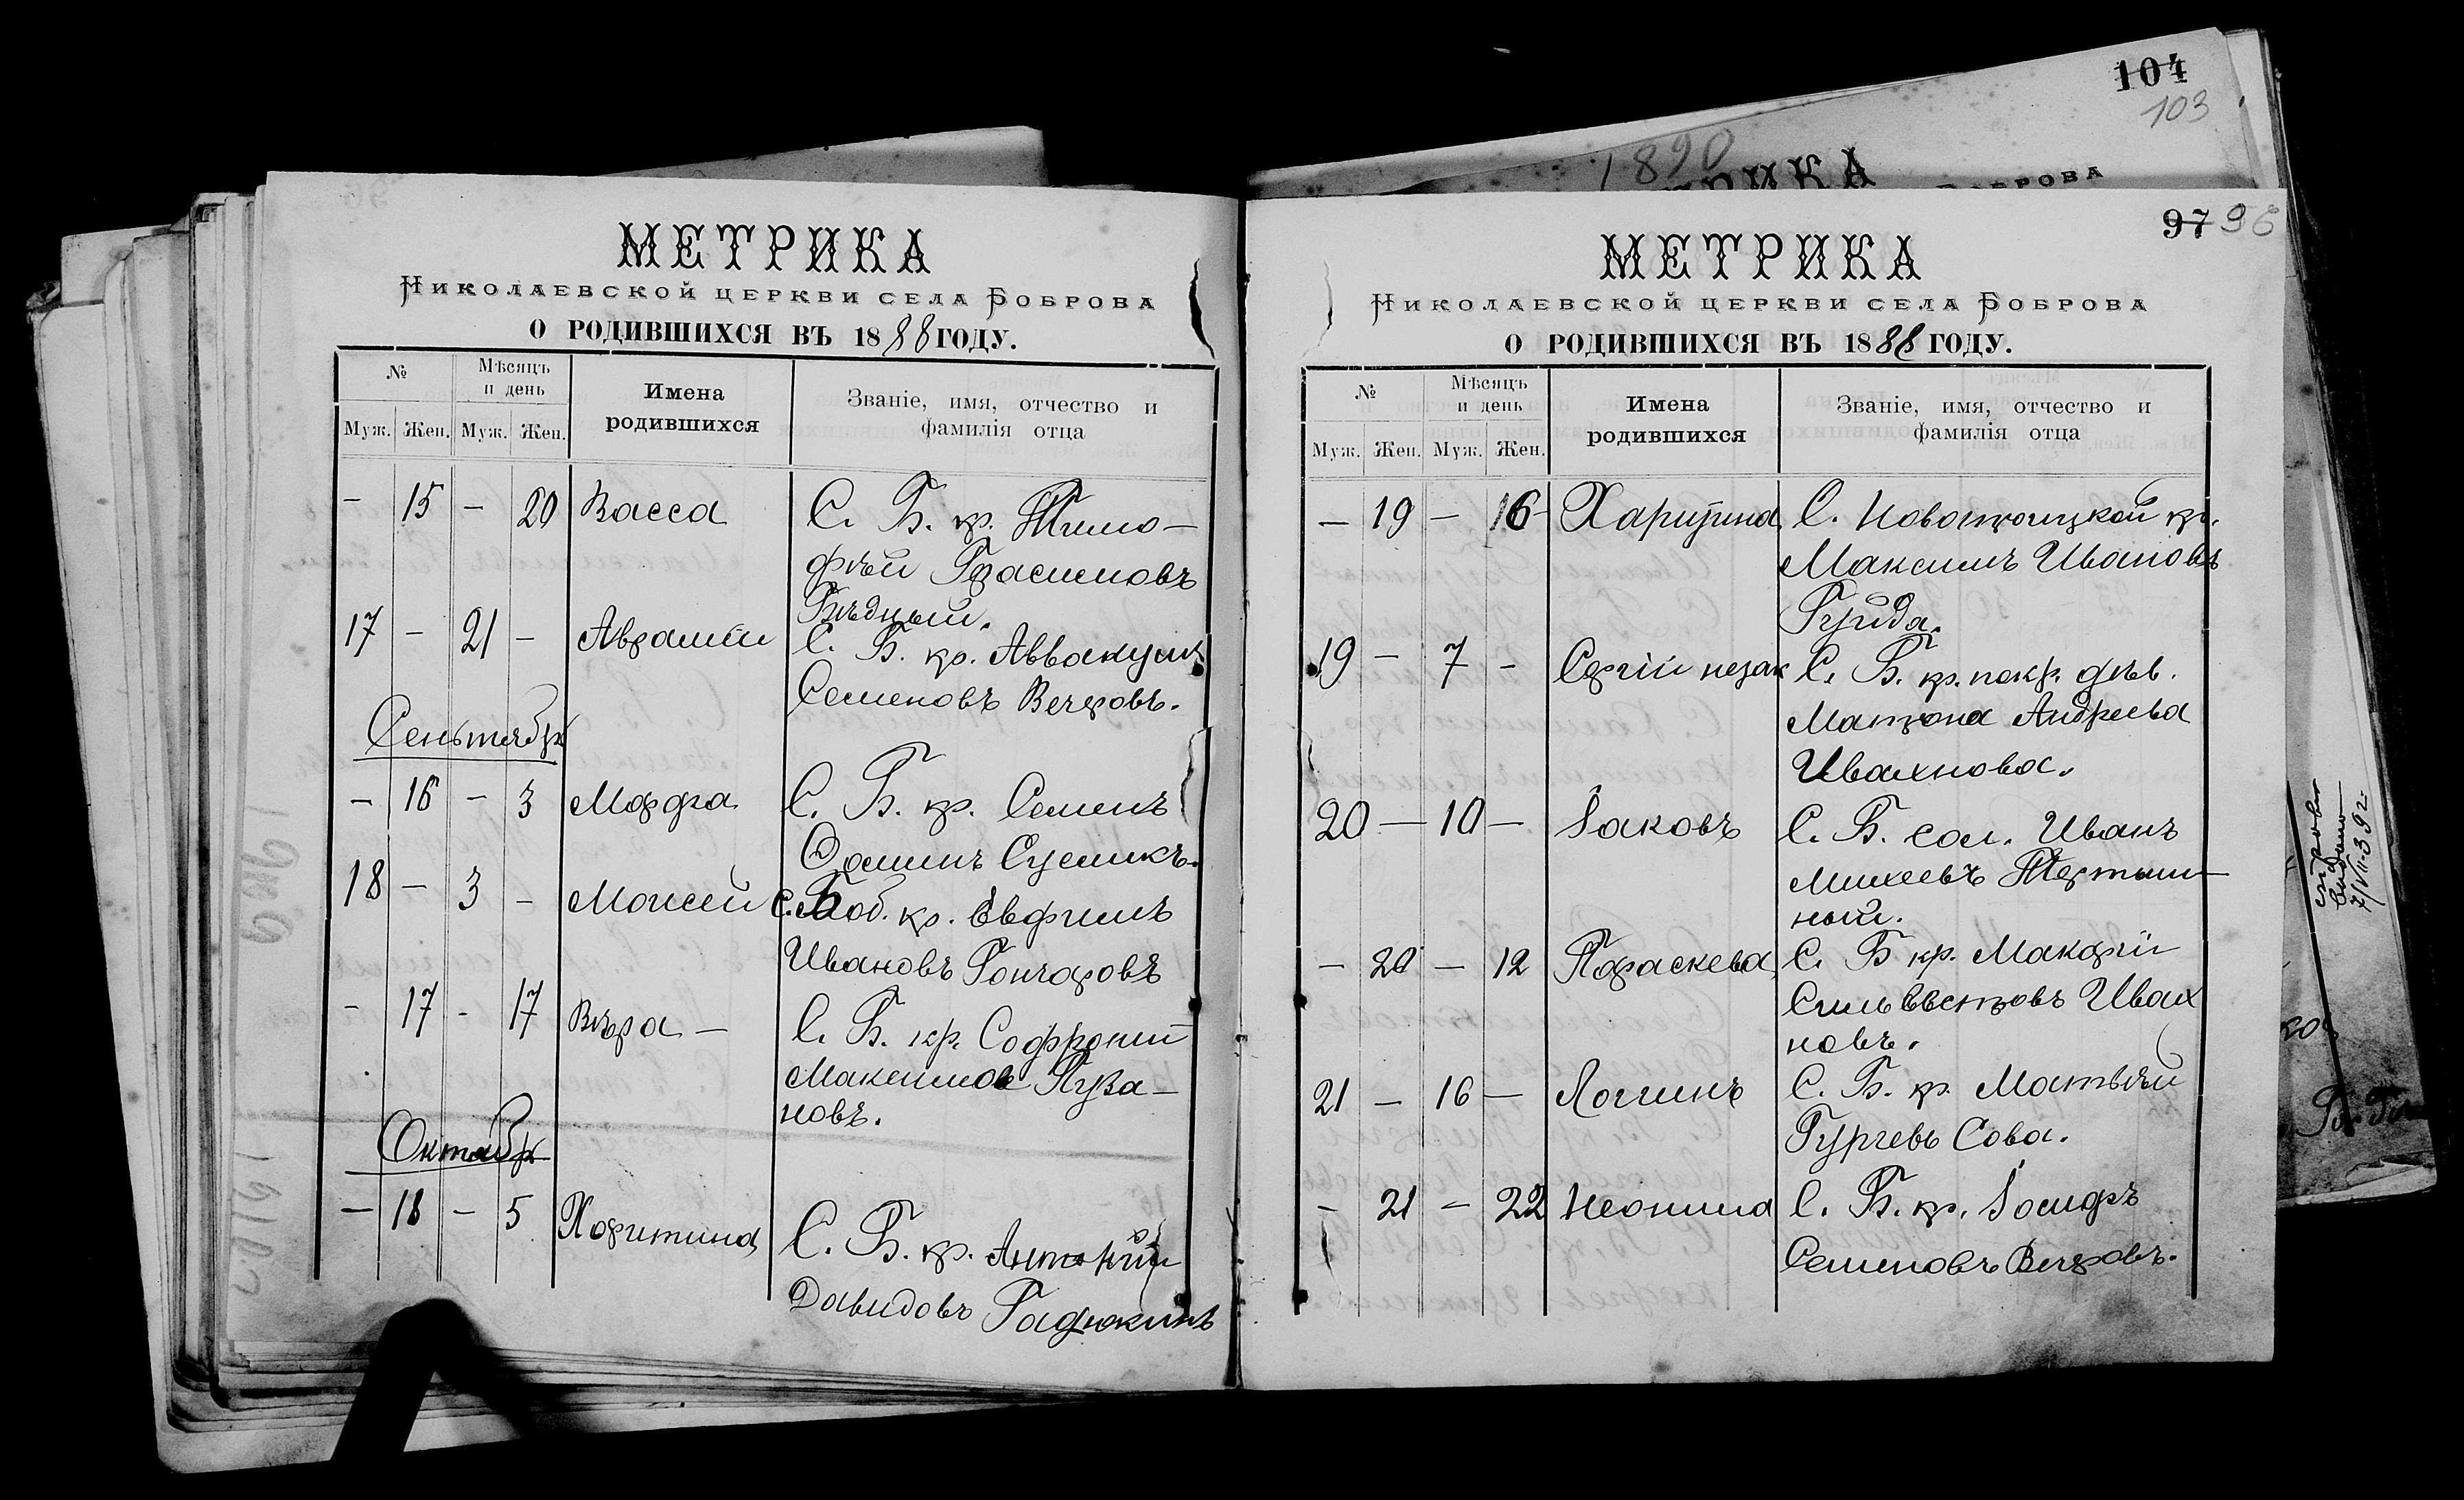 МЕТРИКА
НИКОЛАЕВСКОЙ ЦЕРКВИ СЕЛА БОБРОВА
О РОДИВШИХСЯ ВЪ 1888 ГОДУ.
№
Мѣсяцъ
и день
Имена
родившихся
Званіе, имя, отчество и
фамилія отца
Муж. Жен. Муж. Жен.
- 15 - 20 Васса С. Б. кр. Тимо-
фѣй Герасимовъ
Бѣдный.
17 - 21 - Аврамій С. Б. кр. Аввакумъ
Семеновъ Вечеровъ.
Сентябрь
- 16 - 3 Марфа С. Б. кр. Семенъ
Фоминъ Сусликъ.
18 - 3 - Моисей С. Боб. кр. Евфимъ
Ивановъ Гончаровъ
- 17 - 17 Вѣра - С. Б. кр. Софроній
Максимовъ Пуза-
новъ.
Октябрь
- 18 - 5 Харитина С. Б. кр. Антоній
Давидовъ Гадюкинъ
104
103
1890
МЕТРИКА
БОБРОВА
97 96
МЕТРИКА
НИКОЛАЕВСКОЙ ЦЕРКВИ СЕЛА БОБРОВА
О РОДИВШИХСЯ ВЪ 1888 ГОДУ.
№
Мѣсяцъ
и день
Имена
родившихся
Званіе, имя, отчество и
фамилія отца
Муж. Жен. Муж. Жен.
- 19 - 16 Харитина С. Новотроицкой кр.
Максимъ Ивановъ
Гуйда.
19 - 7 - Сергій незак С. Б. кр. покр. дѣв.
Матрона Андреева
Ивахнова.
20 - 10 - Іаковъ С. Б. сол. Иванъ
Михеевъ Тертыш-
ный.
- 20 - 12 Параскева С. Б кр. Макарій
Сильвестровъ Ивах
новъ.
21 - 16 - Логгинъ С. Б. кр. Матвѣй
Гурьевъ Сова.
- 21 - 22 Неонила С. Б. кр. Іосифъ
Семеновъ Вечеровъ.